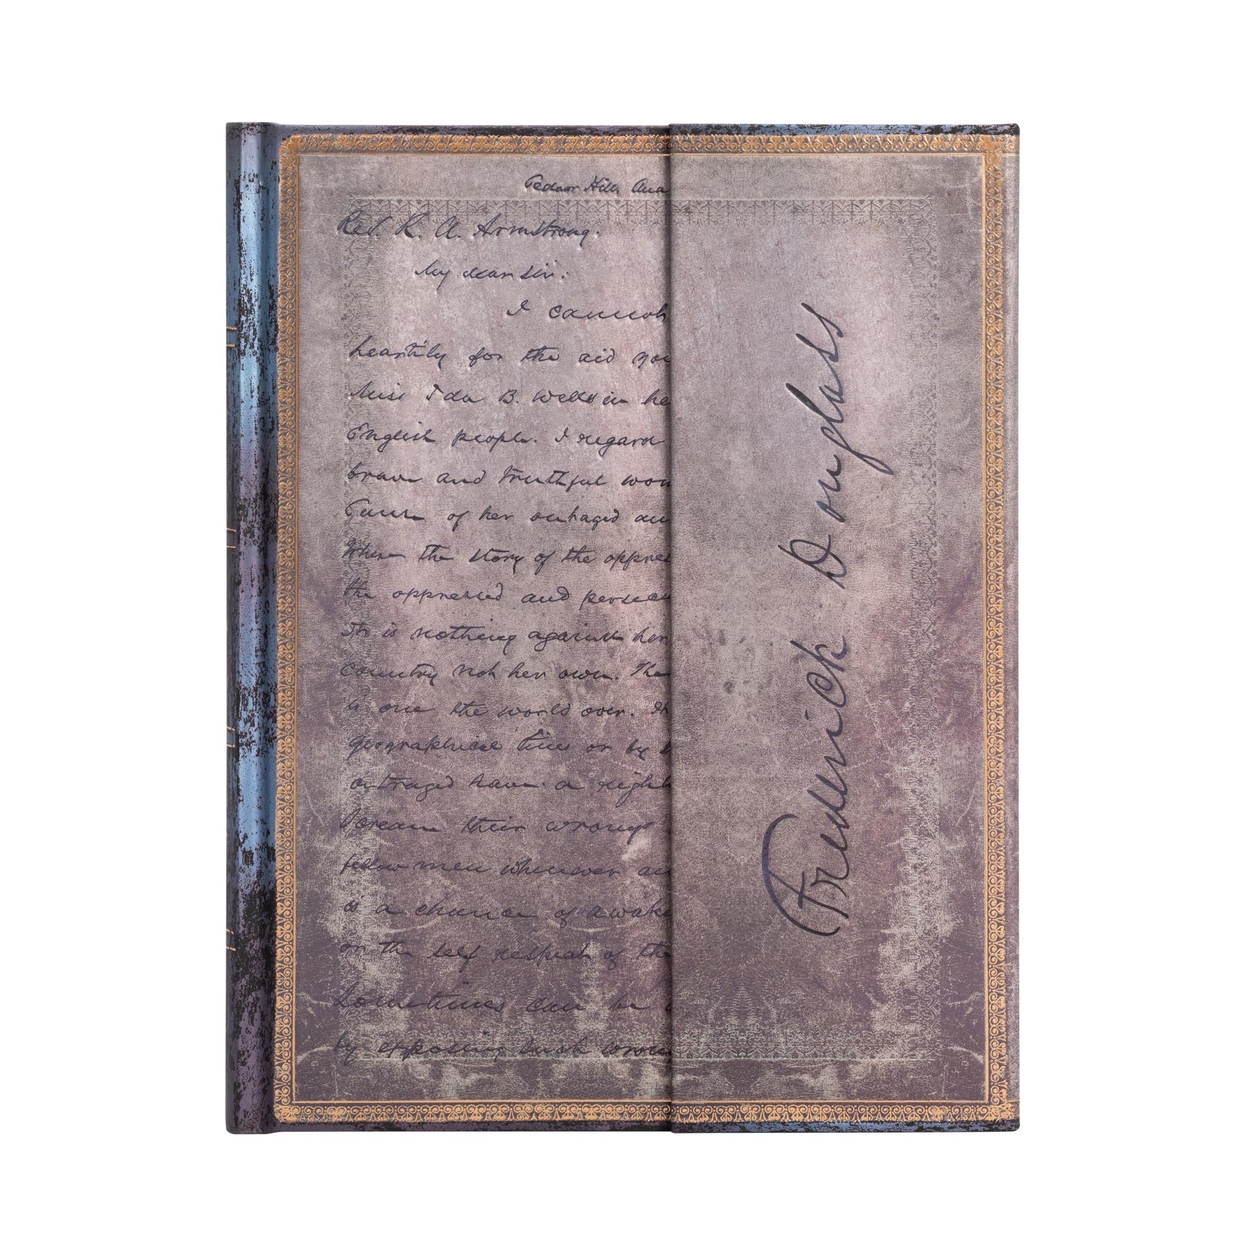 Cedar Hill, Ana
Rev. R. A. Armstrong.
My dear sir:
I cannot
heartily for the aid you
Miss Ida B. Wells in he
English people. I regard
brave and truthful wom
Cause of her outraged an
When the story of the oppres
the oppressed and persecu
It is nothing against her
country not her own. The
is one the world over.
geographical lines or by
outraged have a right
their wrongs
fellow men wherever an
is a chance of awake
or the self respect of the
Sometimes can be
by exposing such wrong
Frederick Douglass